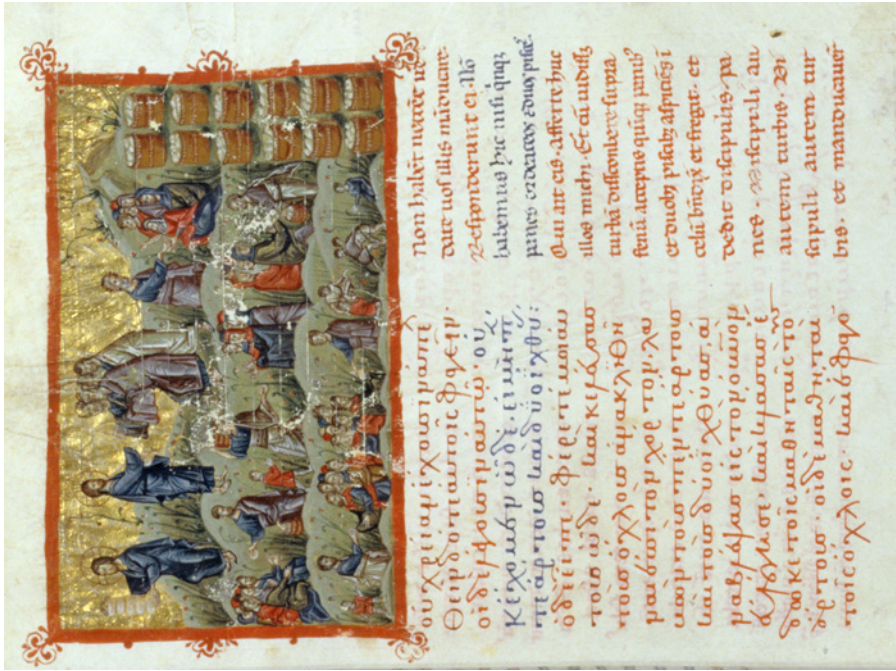 οὐ χρείαν ἔχουσιν ἀπελ
θεῖν δότε αὐτοῖς φαγεῖν.
οἱ δὲ λέγουσιν αὐτῷ· οὐ
κ ἔχομεν ὧδε. εἰ μὴ πέν
τε ἄρτους καὶ δύο ἰχθύ:
ὁ δὲ εἶπε φέρετέ μοι αὐ
τοὺς ὧδε. καὶ κελεύσας
τοὺς ὄχλους ἀνακλιθῆ
τοὺς λα
βὼν τοὺς πέντε ἄρτους
καὶ τοὺς δύο ἰχθύας, ἀ
ναβλέψας εἰς τὸν οὐνὸν
καὶ κλάσας ἔ
δωκε τοῖς μαθηταῖς τοὺς
ἄρτους. οἱ δὲ μαθηταὶ
τοῖς ὄχλοις. καὶ ἔφαγον
non habēt
date uos illis māducare.
Responderunt ei. Nō
habemus hic nisi quinqȝ
panes ordeaceos ⁊ duos pisc̄.
Qui ait eis. afferte huc
illos michi. Et cū iussisset
turbā discombere supra
fenū. acceptis quinqȝ panibȝ
et duobȝ piscibȝ aspiciēs ī
celū bn̄dix̄ et fregit. et
dedit discipulis pa
nes. discipuli au
tem turbis. Di
scipuli autem tur
bis. et manducauer̄